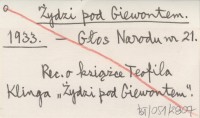 Żydzi pod Giewontem.
1933. – Głos Narodu nr 21.
Rec. o książce Teofila
Klinga „Żydzi pod Giewontem".